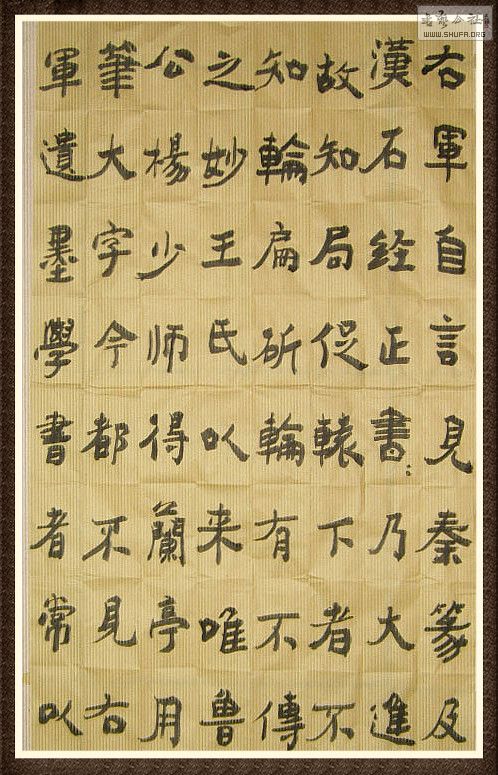 右軍自言見秦篆及
漢石經正書〻乃大進
故知局促轅下者不
知輪扁斫輪有不傳
之妙王氏以来唯魯
公楊少师得蘭亭用
筆大字今都不見右
軍遺墨學書者常以
WWW.SHUFA.ORG